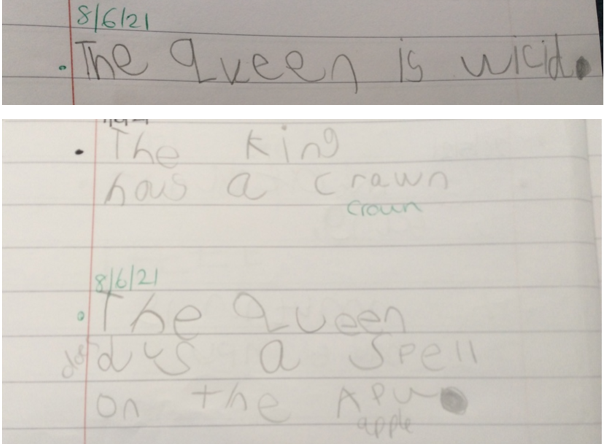 8/6/21
. The Queen is wicid.
. The King
hous a crawn
croun
8/6/21
. The Queen
dus a Spell
on the APu
apple